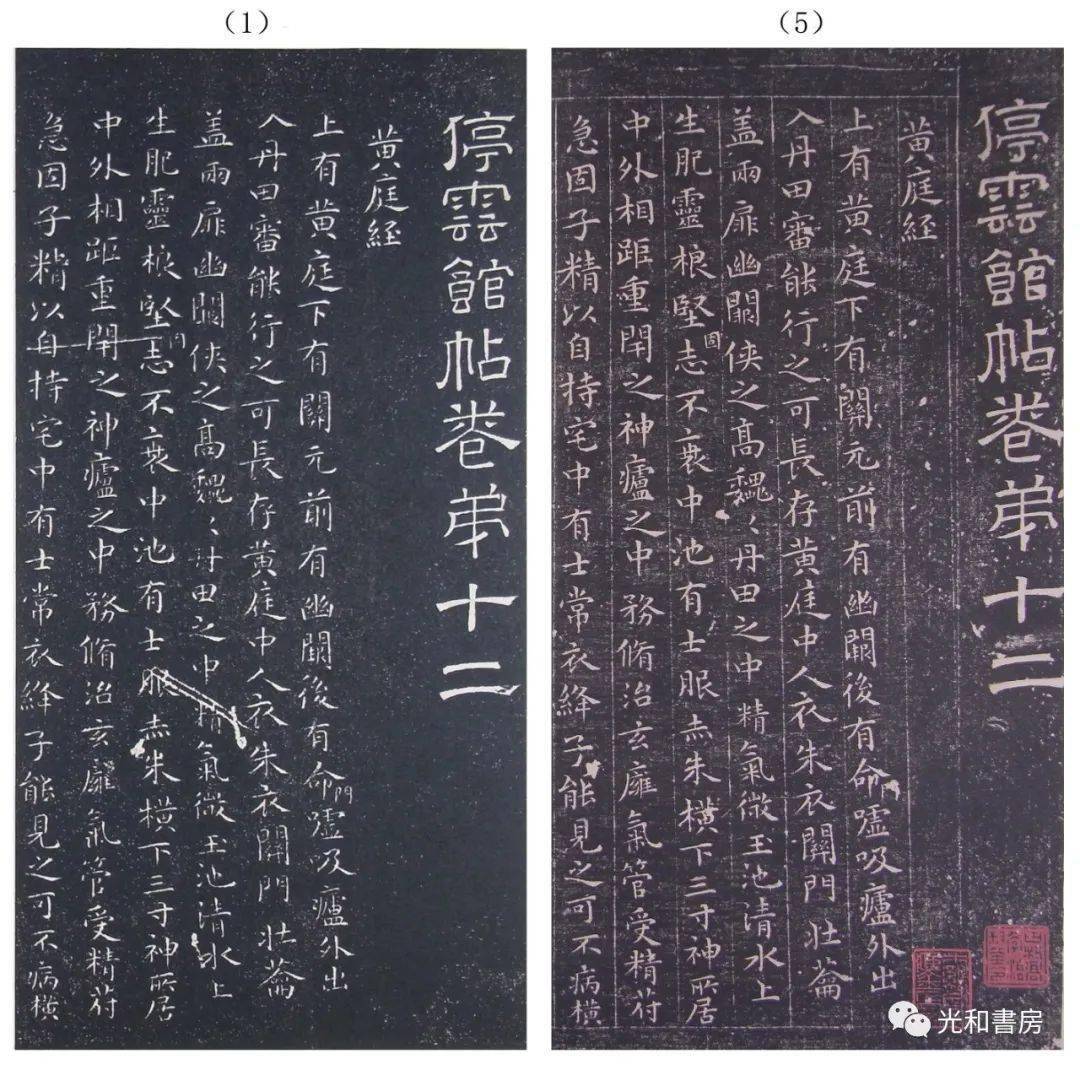 (1)
停雲館帖卷弟十二
黄庭経
上有黄庭下有關元前有幽闕後有命門嘘吸廬外出
入丹田審能行之可長存黄庭中人衣朱衣關門壮蘥
盖兩扉幽闕侠之高巍〻丹田之中精氣微玉池清水上
生肥靈根堅固志不衰中池有士服赤朱横下三寸神所居
中外相距重閇之神廬之中務脩治玄㢊氣管受精苻
急固子精以自持宅中有士常衣絳子能見之可不病横
(5)
停雲館帖卷弟十二
黄庭経
上有黄庭下有關元前有幽闕後有命嘘吸廬外出
入丹田審能行之可長存黄庭中人衣朱衣關門壮蘥
盖兩扉幽闕侠之高巍〻丹田之中精氣微玉池清水上
生肥靈根堅固志不衰中池有士服赤朱横下三寸神所居
中外相距重閇之神廬之中務脩治玄㢊氣管受精苻
急固子精以自持宅中有士常衣絳子能見之可不病横
光和書房